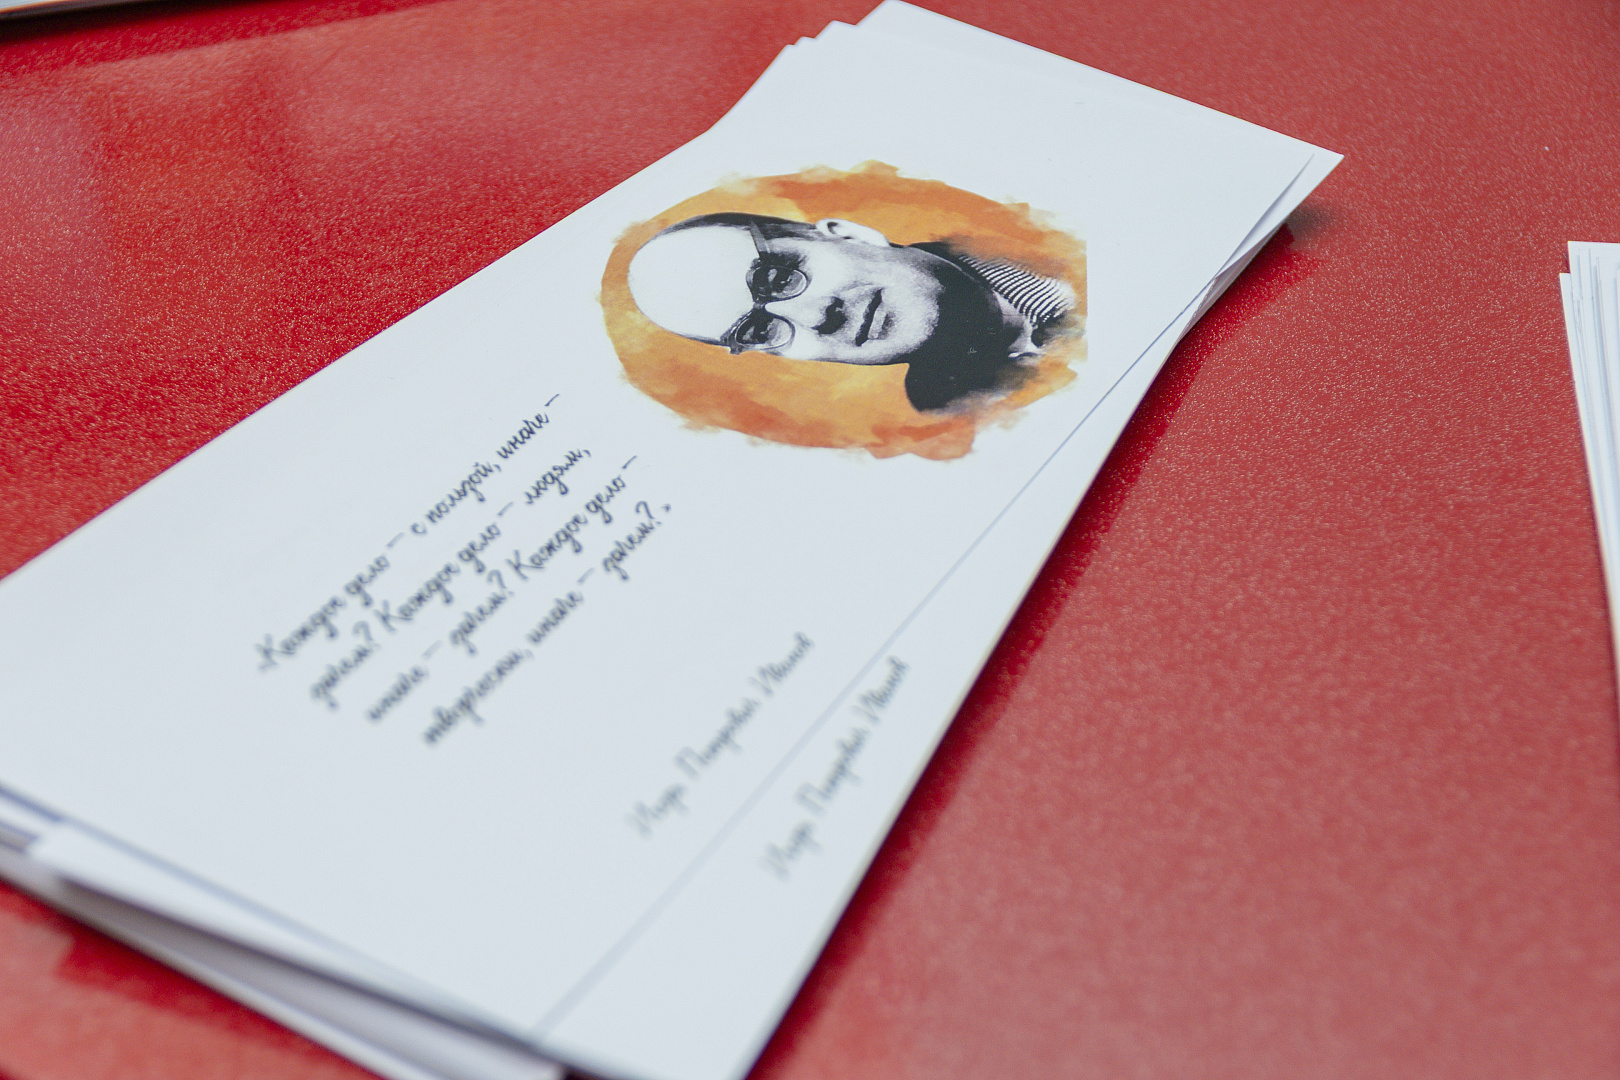 «Каждое дело – с пользой, иначе –
зачем? Каждое дело – людям,
иначе – зачем? Каждое дело –
творчески, иначе – зачем?»
Игорь Петрович Иванов
Игорь Петрович Иванов